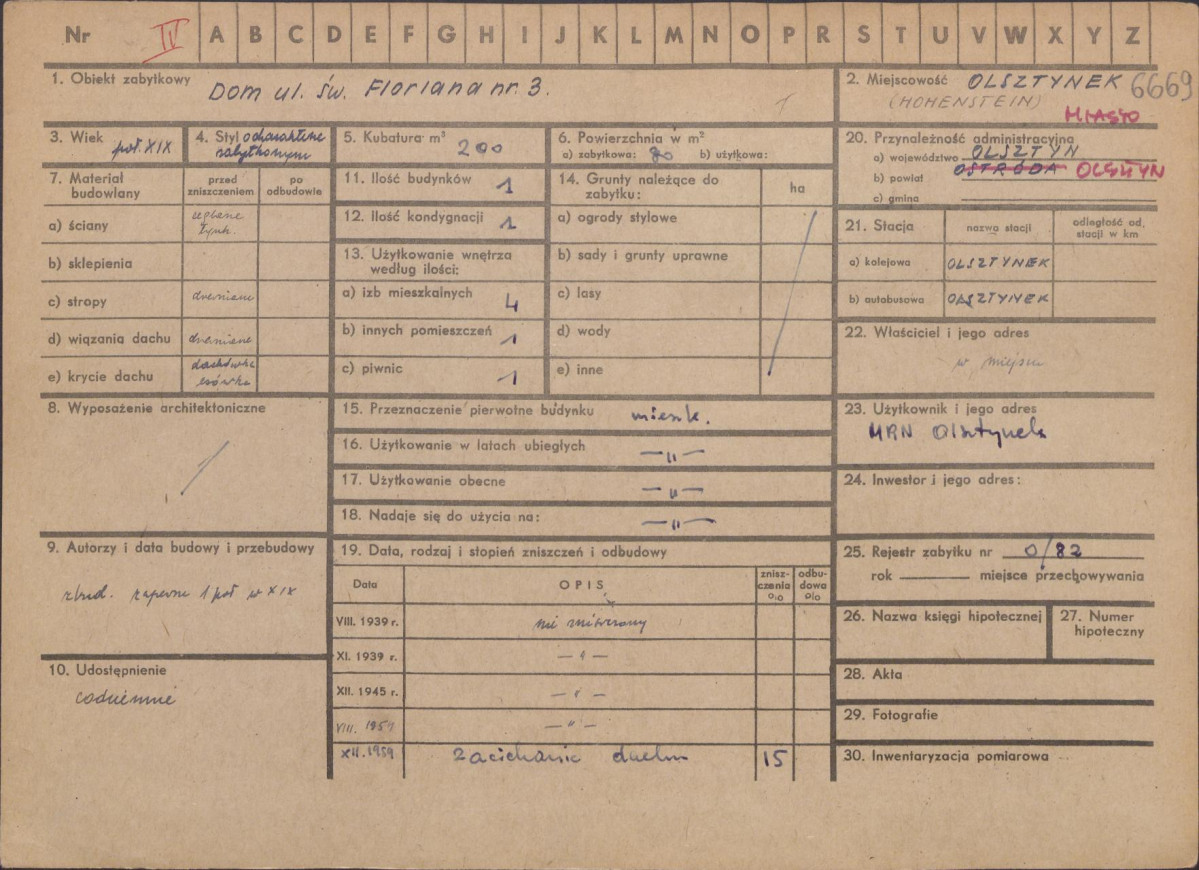 Nr II A B C D E F G H I J K L M N O P R S T U V W X Y Z
1. Obiekt zabytkowy Dom ul. św. Floriana nr 3.
2. Miejscowość OLSZTYNEK 6669
(HOHENSTEIN)
MIASTO
3. Wiek poł XIX
4. Styl o charakterze
zabytkowym
5. Kubatura m³ 200
6. Powierzchnia w m²
a) zabytkowa: 80 b) użytkowa:
20. Przynależność administracyjna
a) województwo OLSZTYN
b) powiat OSTRÓDA OLSZTYN
c) gmina
7. Materiał budowlany
przed zniszczeniem
po odbudowie
a) ściany ceglane
tynk.
b) sklepienia
c) stropy drewniane
d) wiązania dachu drewniane
e) krycie dachu dachówka
esówka
11. Ilość budynków 1
12. Ilość kondygnacji 1
13. Użytkowanie wnętrza
według ilości:
a) izb mieszkalnych 4
b) innych pomieszczeń 1
c) piwnic 1
14. Grunty należące do
zabytku:
ha
a) ogrody stylowe
b) sady i grunty uprawne
c) lasy
d) wody
e) inne
21. Stacja
nazwa stacji
odległość od
stacji w km
a) kolejowa OLSZTYNEK
b) autobusowa OLSZTYNEK
22. Właściciel i jego adres
w miejscu
8. Wyposażenie architektoniczne
15. Przeznaczenie pierwotne budynku mieszk.
16. Użytkowanie w latach ubiegłych — " —
17. Użytkowanie obecne — " —
18. Nadaje się do użycia na: — " —
23. Użytkownik i jego adres
MRN Olsztynek
24. Inwestor i jego adres:
9. Autorzy i data budowy i przebudowy
zbud. zapewne 1 poł w XIX
10. Udostępnienie
codziennie
19. Data, rodzaj i stopień zniszczeń i odbudowy
Data
OPIS
znisz-
czenia
o/o
odbu-
dowa
o/o
VIII. 1939 r. nie zniszczony
XI. 1939 r. — " —
XII. 1945 r. — " —
VIII. 1954 — " —
XII. 1959 zaciekanie dachu 15
25. Rejestr zabytku nr 0/82
rok miejsce przechowywania
26. Nazwa księgi hipotecznej
27. Numer
hipoteczny
28. Akta
29. Fotografie
30. Inwentaryzacja pomiarowa